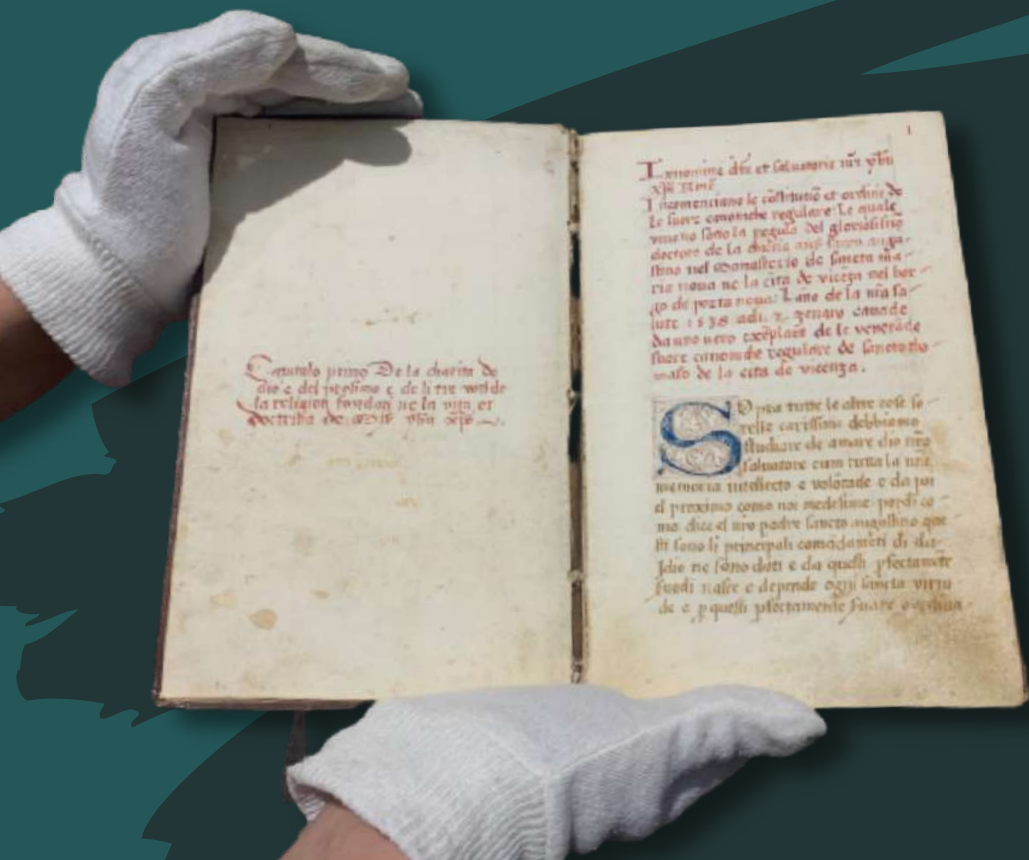 Capitulo primo De la charita de
dio e del proximo e de li tre voti de
la religion fondon ne la vita et
doctrina de xpo
1
In nomine dni et salvatoris nri yhu
xpi amē
Incomenciano le cōstitutiō et ordine de
le suore canoniche regulare Le quale
viveno soto la regula del gloriosissimo
doctore de la chiesia augu
stino nel Monasterio de sancta ma
ria noua ne la cita de vicēza nel bor
go de porta noua: L ano de la nr̄a sa
lute 1538 adi. 2. zenaro cauade
da uno uero exēplare de le venerāde
suore canoniche regulare de sancto tho
maso de la cita de vicenza.
Sopra tutte le altre cose so
relle carissime debbiamo
studiare de amare dio nr̄o
saluatore cum tutta la nr̄a
memoria intellecto e volōtade e da poi
el proximo como noi medesime perchi co
mo dice el nr̄o padre sancto augustino que
sti sono li principali comādamēti che da
Idio ne sono dati e da questi pfectamēte
fuodi nasce e depende ogni sancta virtu
de e p questi pfectamente